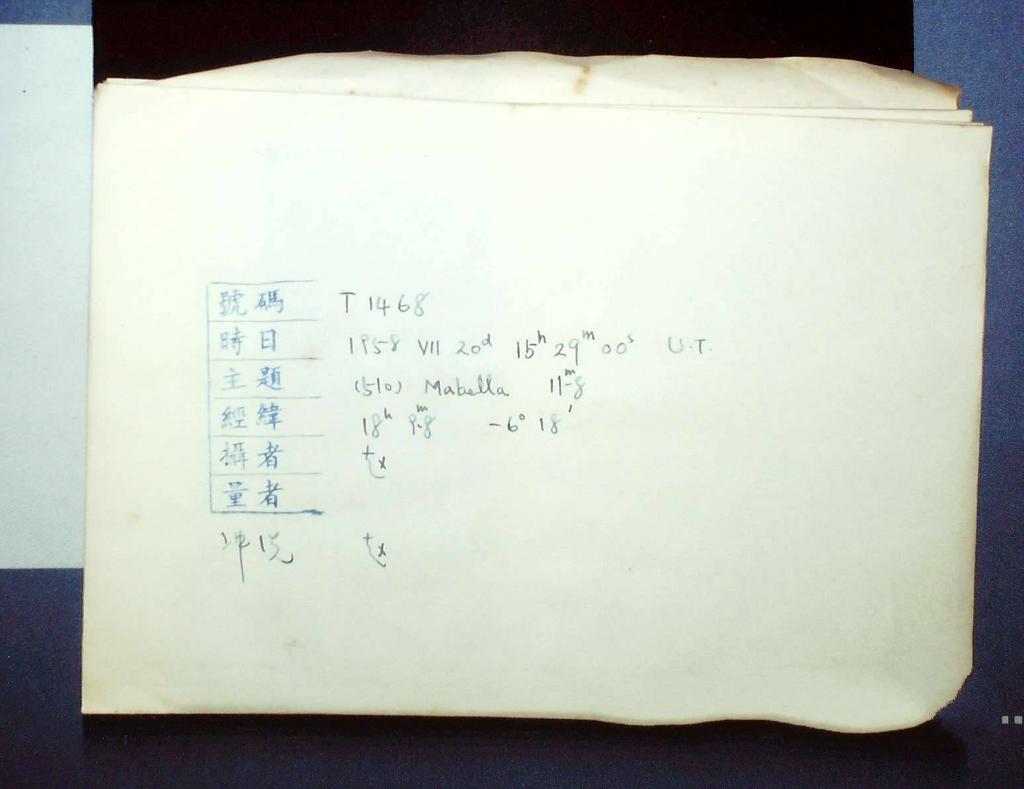 號碼 T 1468
時日 1958 VII 20ᵈ 15ʰ 29ᵐ 00ˢ U.T.
主題 (510) Mabella 11ᵐ.8
經緯 18ʰ 9ᵐ.8 -6° 18'
攝者
量者
冲洗